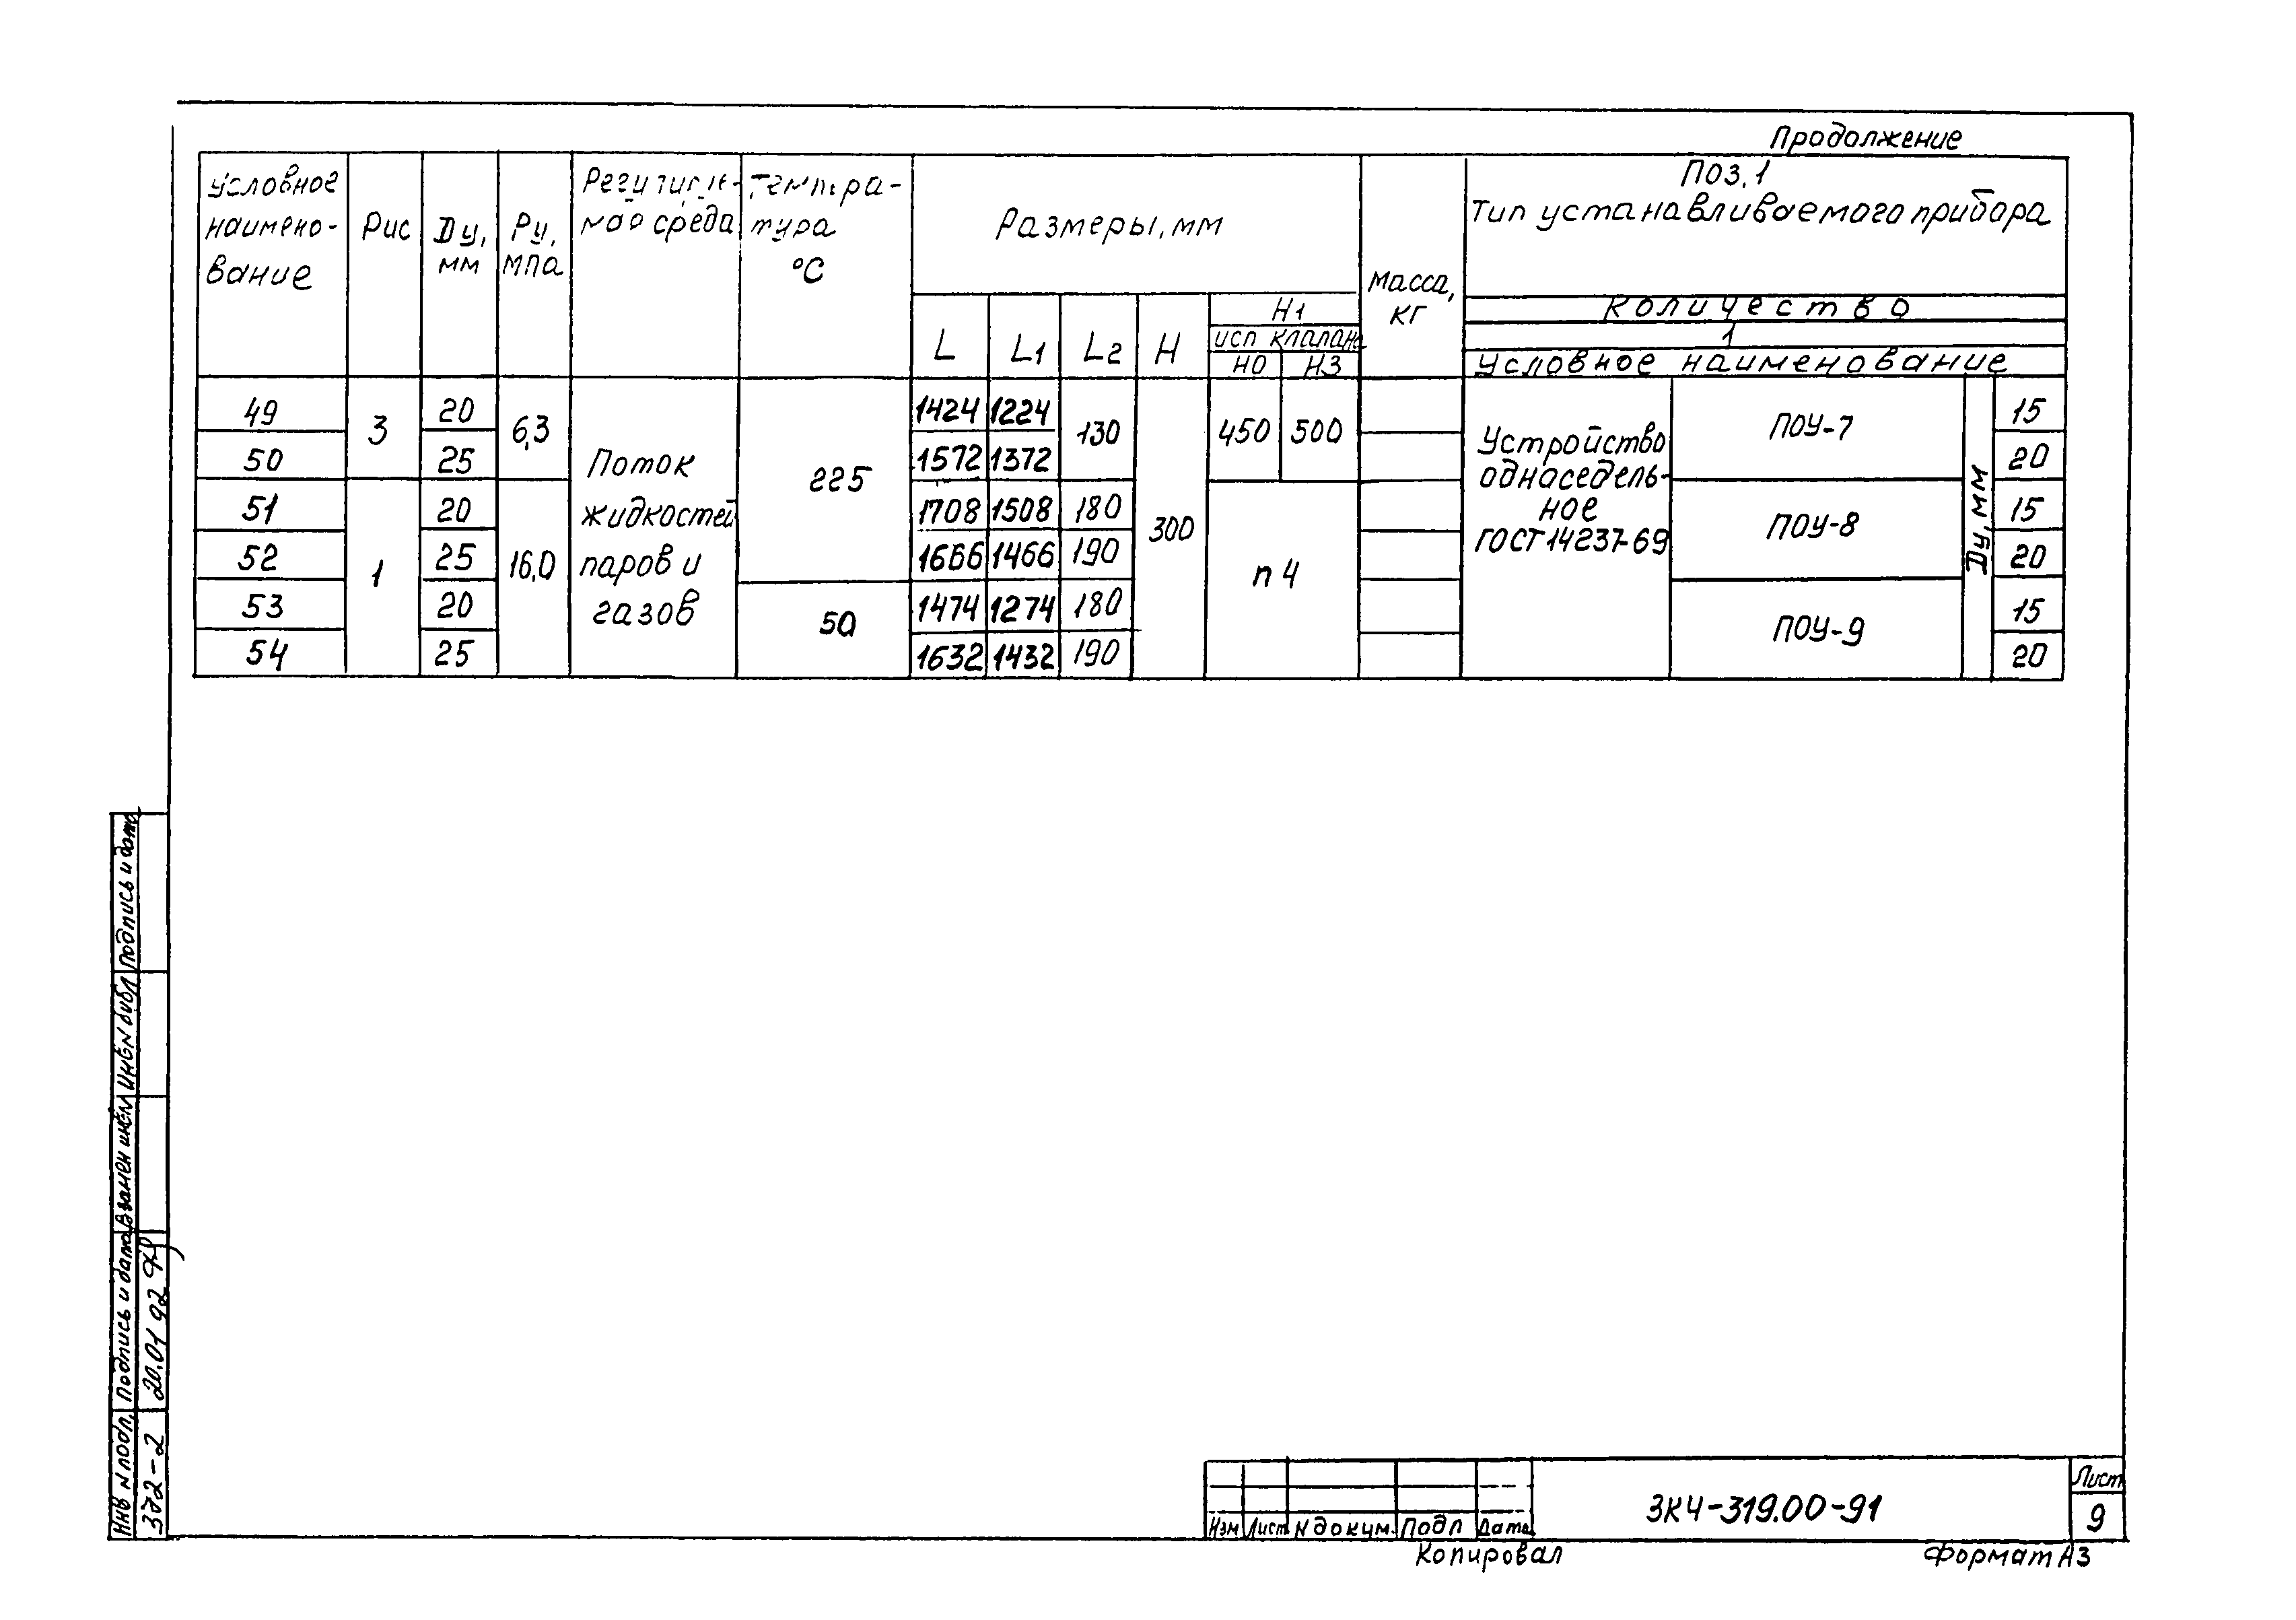 Продолжение
Условное наимено- вание
Рис
Dу, мм
Ру, МПа
среда
тура °С
Размеры, мм
L
L1
L2
H
H1
исп клапана
НО
НЗ
Масса, кг
Поз. 1
Тип устанавливаемого прибора
Количество
1
Условное наименование
49
3
20
6,3
Поток жидкостей паров и газов
225
1424
1224
130
300
450
500
Устройство односедель- ное ГОСТ 14237-69
ПОУ-7
Dу, мм
15
50
25
1572
1372
20
51
1
20
16,0
1708
1508
180
п 4
ПОУ-8
15
52
25
1666
1466
190
20
53
20
50
1474
1274
180
ПОУ-9
15
54
25
1632
1432
190
20
Подпись и дата
Инв N дубл
Взамен инв N
Подпись и дата
20.01 92
Инв N подл.
372-2
Изм
Лист
N докум.
Подп
Дата
ЗК4-319.00-91
Лист
9
Копировал
Формат А3